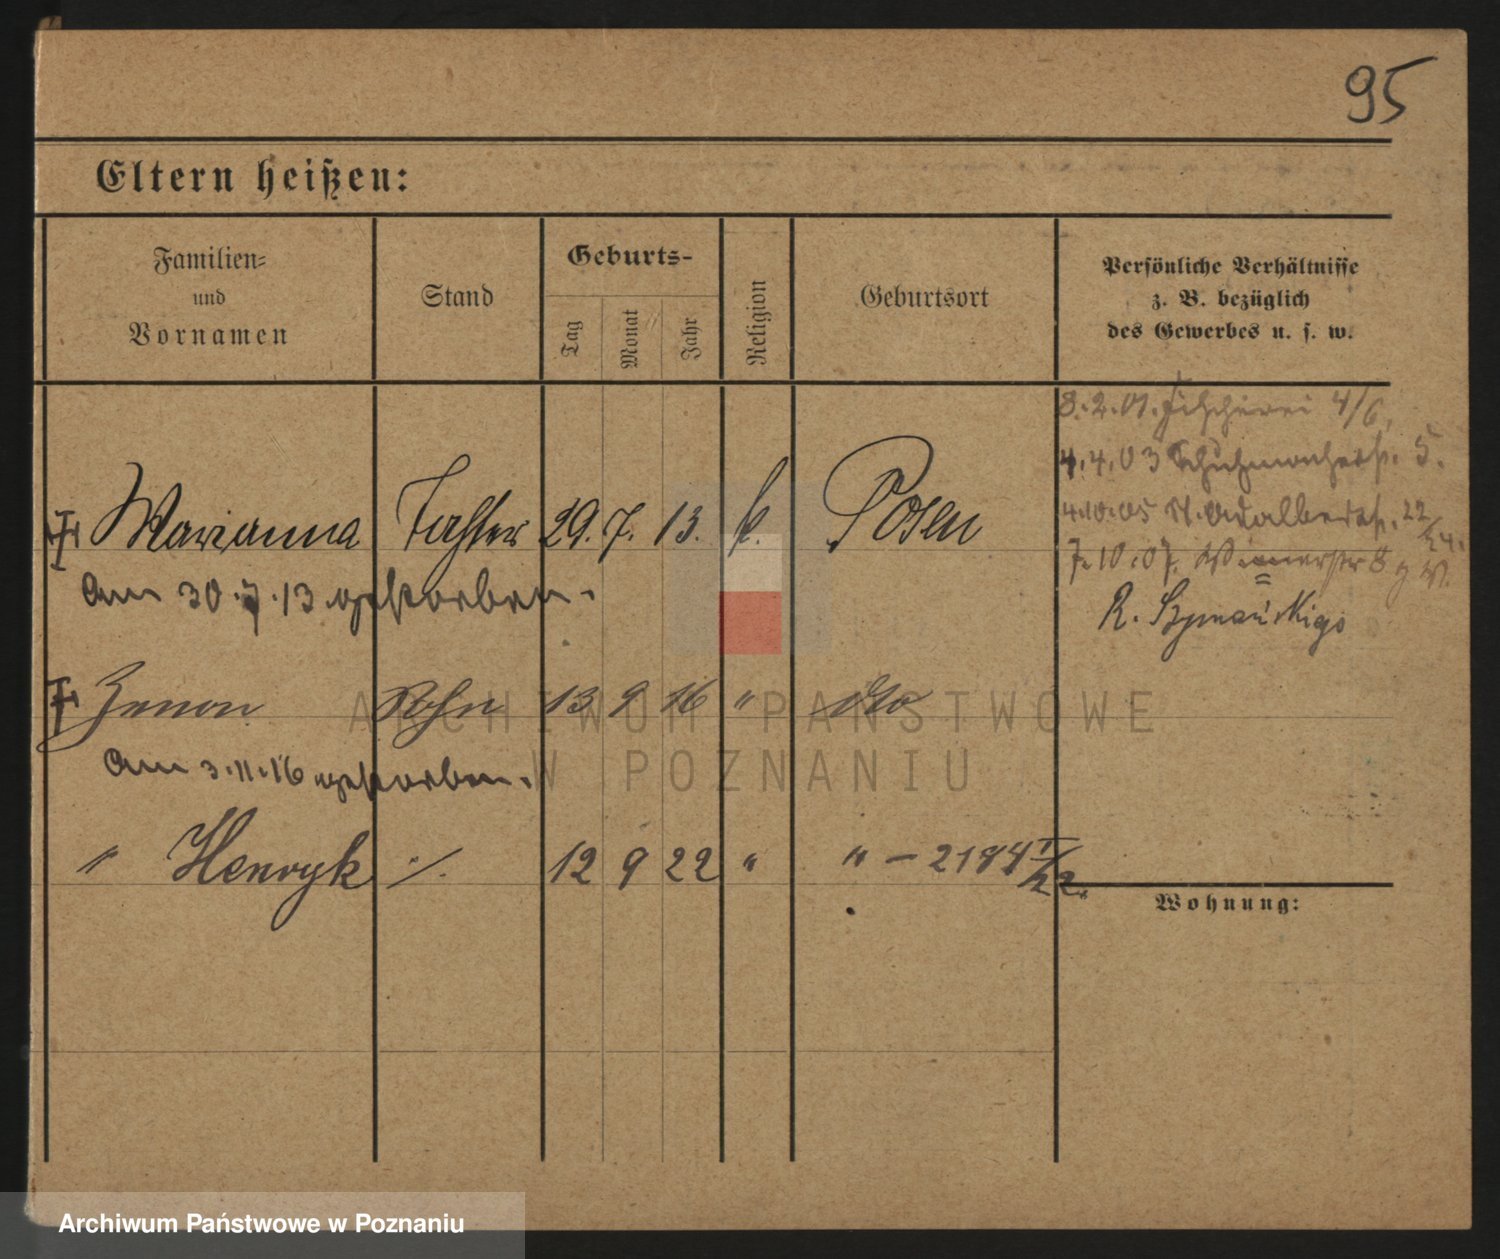 95
Eltern heißen:
Familien=
und
Vornamen
Stand
Geburts-
Tag
Monat
Jahr
Religion
Geburtsort
Persönliche Verhältnisse
z. B. bezüglich
des Gewerbes u. s. w.
8.2.01. Fischerei 4/6,
4.4.03 Schuhmacherstr. 5.
4.10.05 St. Adalbertstr. 22/24.
7.10.07. 8
R. Szymańskiego
Marianna Tochter 29. 7. 13. k. Posen
am 30.7.13 gestorben.
Zenon Sohn 13 9 16 " dto
am 3.11.16 gestorben.
" Henryk ./. 12 9 22 " " - 2184 /22.
Wohnung:
ARCHIWUM PAŃSTWOWE
W POZNANIU
Archiwum Państwowe w Poznaniu